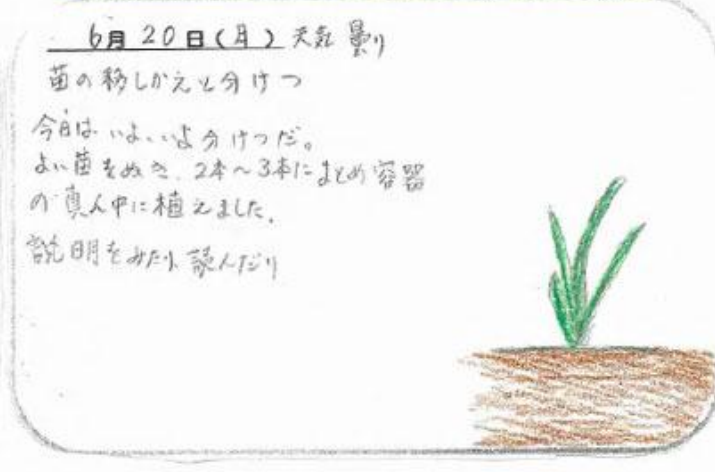 6月20日(月) 天気 曇り
苗の移しかえと分けつ
今日はいよいよ分けつだ。
よい苗をぬき、2本〜3本にまとめ容器
の真ん中に植えました。
説明をみたり、読んだり